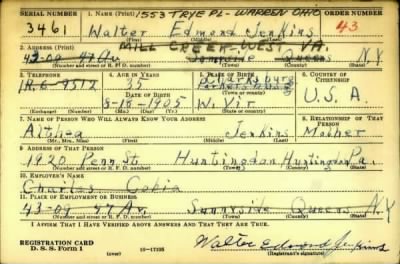 SERIAL NUMBER 1. NAME (Print) 1553 TRYE PL - WARREN OHIO ORDER NUMBER
3461 Walter Edmond Jenkins 43
(First) (Middle) (Last)
2. ADDRESS (Print) MILL CREEK - WEST VA.
43-09 47 Av. Sunnyside Queens N.Y
(Number and street or R. F. D. number) (Town) (County) (State)
3. TELEPHONE 4. AGE IN YEARS 5. PLACE OF BIRTH 6. COUNTRY OF CITIZENSHIP
35 Parkersburg
DATE OF BIRTH (Town or county)
8-18-1905 W. Vir U.S.A.
(Exchange) (Number) (Mo.) (Day) (Yr.) (State or country)
7. NAME OF PERSON WHO WILL ALWAYS KNOW YOUR ADDRESS RELATIONSHIP OF THAT PERSON
Althea Jenkins Mother
(Mr., Mrs., Miss) (First) (Middle) (Last)
9. ADDRESS OF THAT PERSON
1920 Penn St. Huntingdon Huntingdon Pa.
(Number and street or R. F. D. number) (Town) (County) (State)
10. EMPLOYER'S NAME
Charles
11. PLACE OF EMPLOYMENT OR BUSINESS
43-09 47 Av. Sunnyside Queens N.Y
(Number and street or R. F. D. number) (Town) (County) (State)
I AFFIRM THAT I HAVE VERIFIED ABOVE ANSWERS AND THAT THEY ARE TRUE.
REGISTRATION CARD
D. S. S. Form 1 (over) 16-17105 Walter Edmond Jenkins
(Registrant's signature)